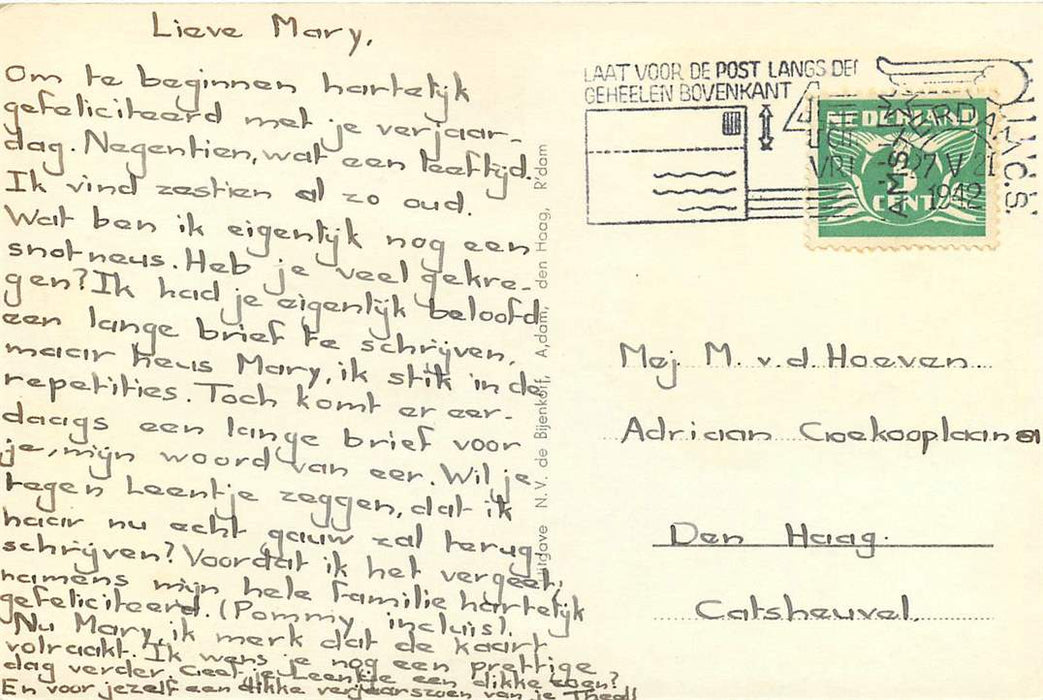 Lieve Mary,
Om te beginnen hartelijk
gefeliciteerd met je verjaar-
dag. Negentien, wat een leeftijd.
Ik vind zestien al zo oud.
Wat ben ik eigenlijk nog een
snotneus. Heb je veel gekre-
gen? Ik had je eigenlijk beloofd
een lange brief te schrijven,
maar heus Mary, ik stik in de
repetities. Toch komt er eer-
daags een lange brief voor
je, mijn woord van eer. Wil je
tegen Leentje zeggen, dat ik
haar nu echt gauw zal terug
schrijven? Voordat ik het vergeet,
namens mijn hele familie hartelijk
gefeliciteerd. (Pommy incluis).
Nu Mary, ik merk dat de kaart
volraakt. Ik wens je nog een prettige
dag verder. Geef je Leentje een dikke zoen?
En voor jezelf een dikke verjaarszoen van je
Uitgave N.V. de Bijenkorf, A,dam, den Haag, R'dam
LAAT VOOR DE POST LANGS DE
GEHEELEN BOVENKANT
NEDERLAND
5
CENT
AMSTERDAM C.S.
27 V 21
1942
Mej M. v. d. Hoeven
Adriaan Goekooplaan
Den Haag.
Catsheuvel.